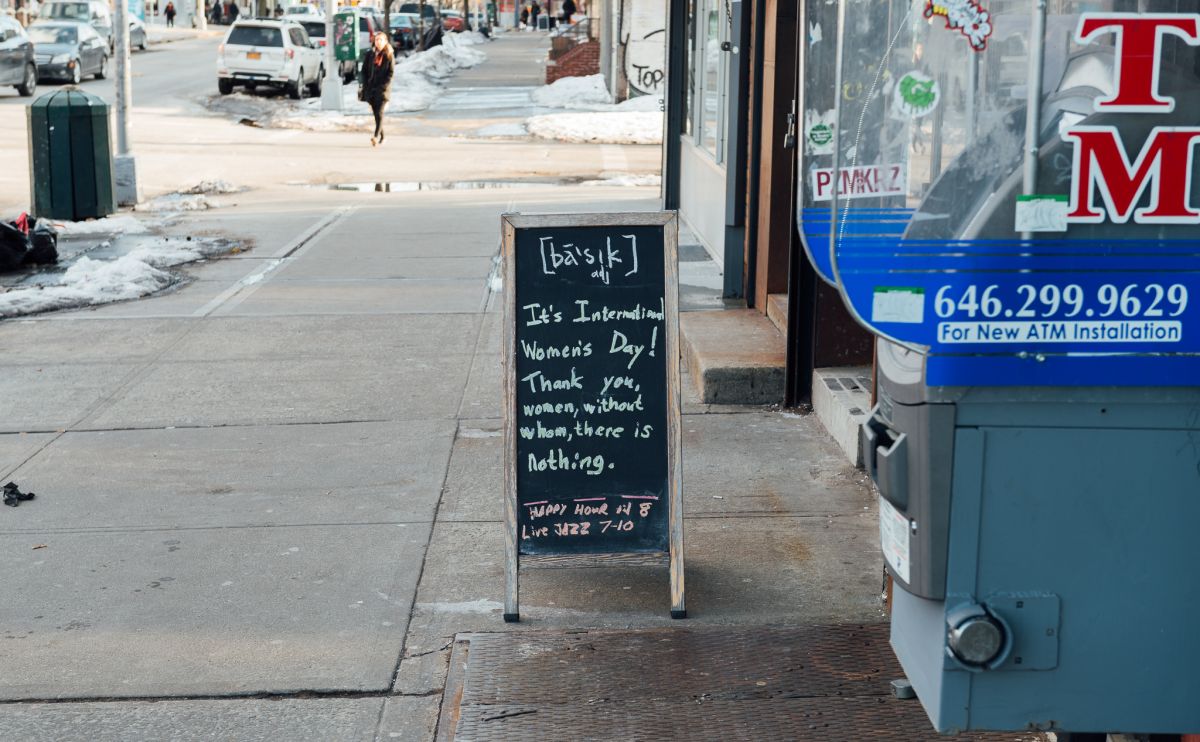 [bā'sik]
adj
It's International
Women's Day!
Thank you,
women, without
whom, there is
nothing.
HAPPY HOUR til 8
Live JAZZ 7-10
TOP
PZMKRZ
T
M
646.299.9629
For New ATM Installation